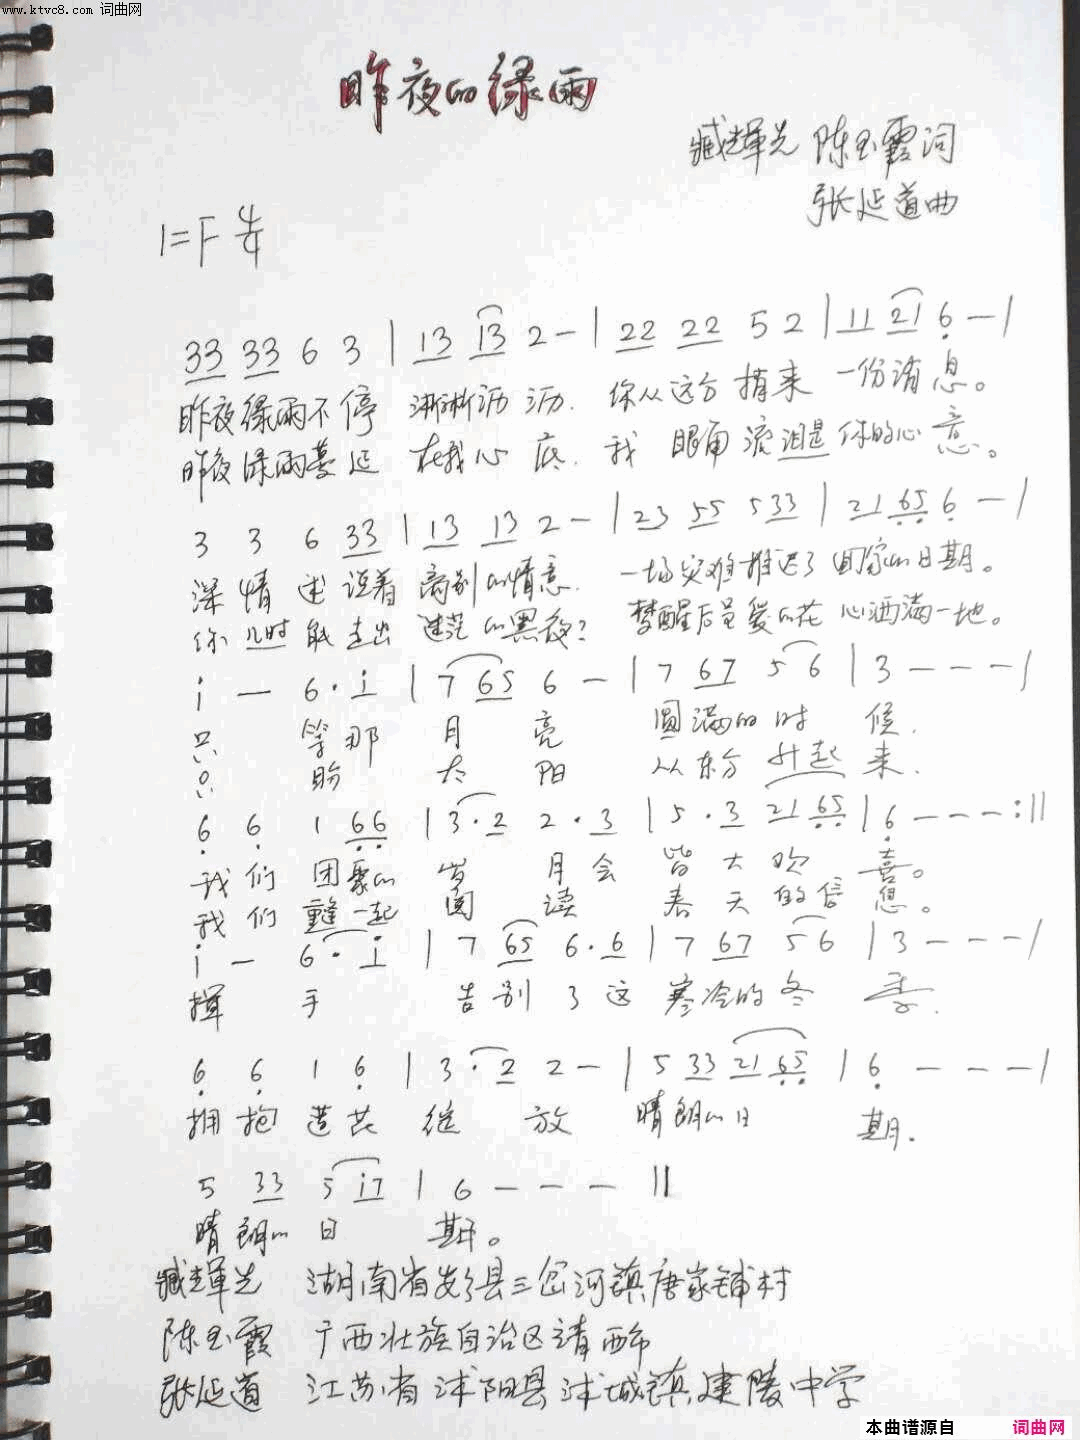 www.ktvc8.com 词曲网
昨夜的绿雨
臧辉光 陈玉霞词
张延道曲
1=F 4/4
33 33 6 3 | 13 13 2 — | 22 22 5 2 | 11 21 6 — |
昨夜绿雨不停 淅淅沥沥. 你从远方捎来 一份消息。
昨夜绿雨蔓延 在我心底. 我眼角流泪是你的心意。
3 3 6 33 | 13 13 2 — | 23 55 5 33 | 21 65 6 — |
深情述说着离别的情意. 一场灾难推迟了回家的日期。
你几时能走出迷茫的黑夜? 梦醒后是爱的花心洒满一地。
i — 6· i | 7 65 6 — | 7 67 5 6 | 3 — — — |
只 等那 月 亮 圆满的时 候.
只 盼 太 阳 从东方升起来.
6 6 1 66 | 3· 2 2· 3 | 5· 3 21 65 | 6 — — — :||
我们团聚的 岁 月会皆大欢 喜。
我们重逢一起 阅 读 春天的信 息。
i — 6· i | 7 65 6· 6 | 7 67 5 6 | 3 — — — |
挥 手 告别了这寒冷的冬 季.
6 6 1 6 | 3· 2 2 — | 5 33 21 65 | 6 — — — |
拥抱 花 绽 放 晴朗的日 期.
5 33 5 i7 | 6 — — — ||
晴朗的日 期。
臧辉光 湖南省 县三岔河镇唐家铺村
陈玉霞 广西壮族自治区靖西市
张延道 江苏省沭阳县沭城镇建陵中学
本曲谱源自 词曲网